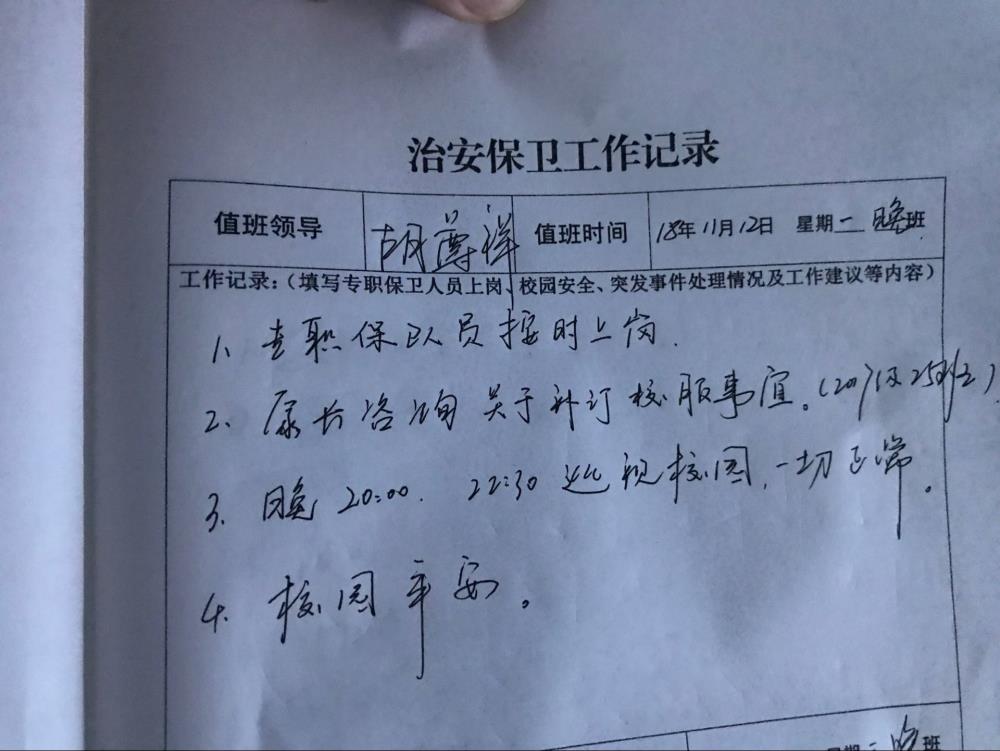 治安保卫工作记录
值班领导 胡尊祥 值班时间 18年11月12日 星期一 晚班
工作记录:(填写专职保卫人员上岗、校园安全、突发事件处理情况及工作建议等内容)
1、专职保队员按时上岗.
2、家长咨询关于补订校服事宜。(2017级25班)
3、晚20:00. 22:30巡视校园,一切正常。
4. 校园平安。
晚班